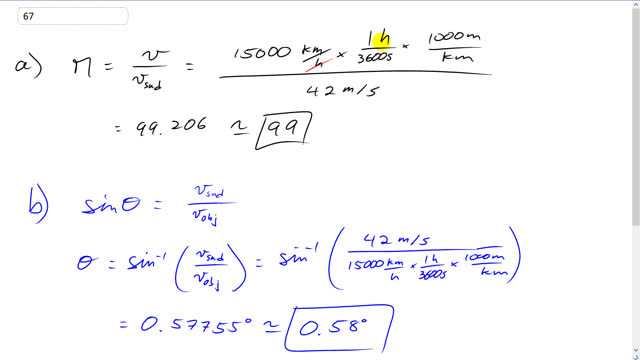 67
a) M = v / v_snd = 15000 km/h × 1h/3600s × 1000m/km / 42 m/s
= 99.206 ≃ 99
b) sinθ = v_snd / v_obj
θ = sin⁻¹ (v_snd / v_obj) = sin⁻¹ (42 m/s / 15000 km/h × 1h/3600s × 1000m/km)
= 0.57755° ≃ 0.58°